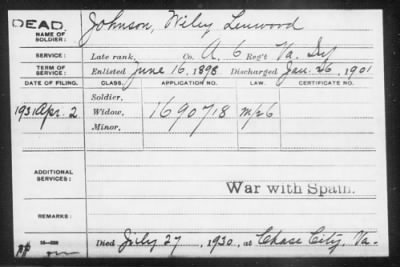 DEAD.
NAME OF SOLDIER: Johnson, Wiley Linwood
SERVICE: Late rank, Co. A, 6 Reg't Va. Inf
TERM OF SERVICE: Enlisted June 16, 1898 Discharged Jan. 26, 1901
DATE OF FILING. CLASS. APPLICATION NO. LAW. CERTIFICATE NO.
Soldier.
1931 Apr. 2 Widow, 1690718
Minor.
ADDITIONAL SERVICES:
War with Spain.
REMARKS:
Died July 27, 1930, at Chase City, Va.